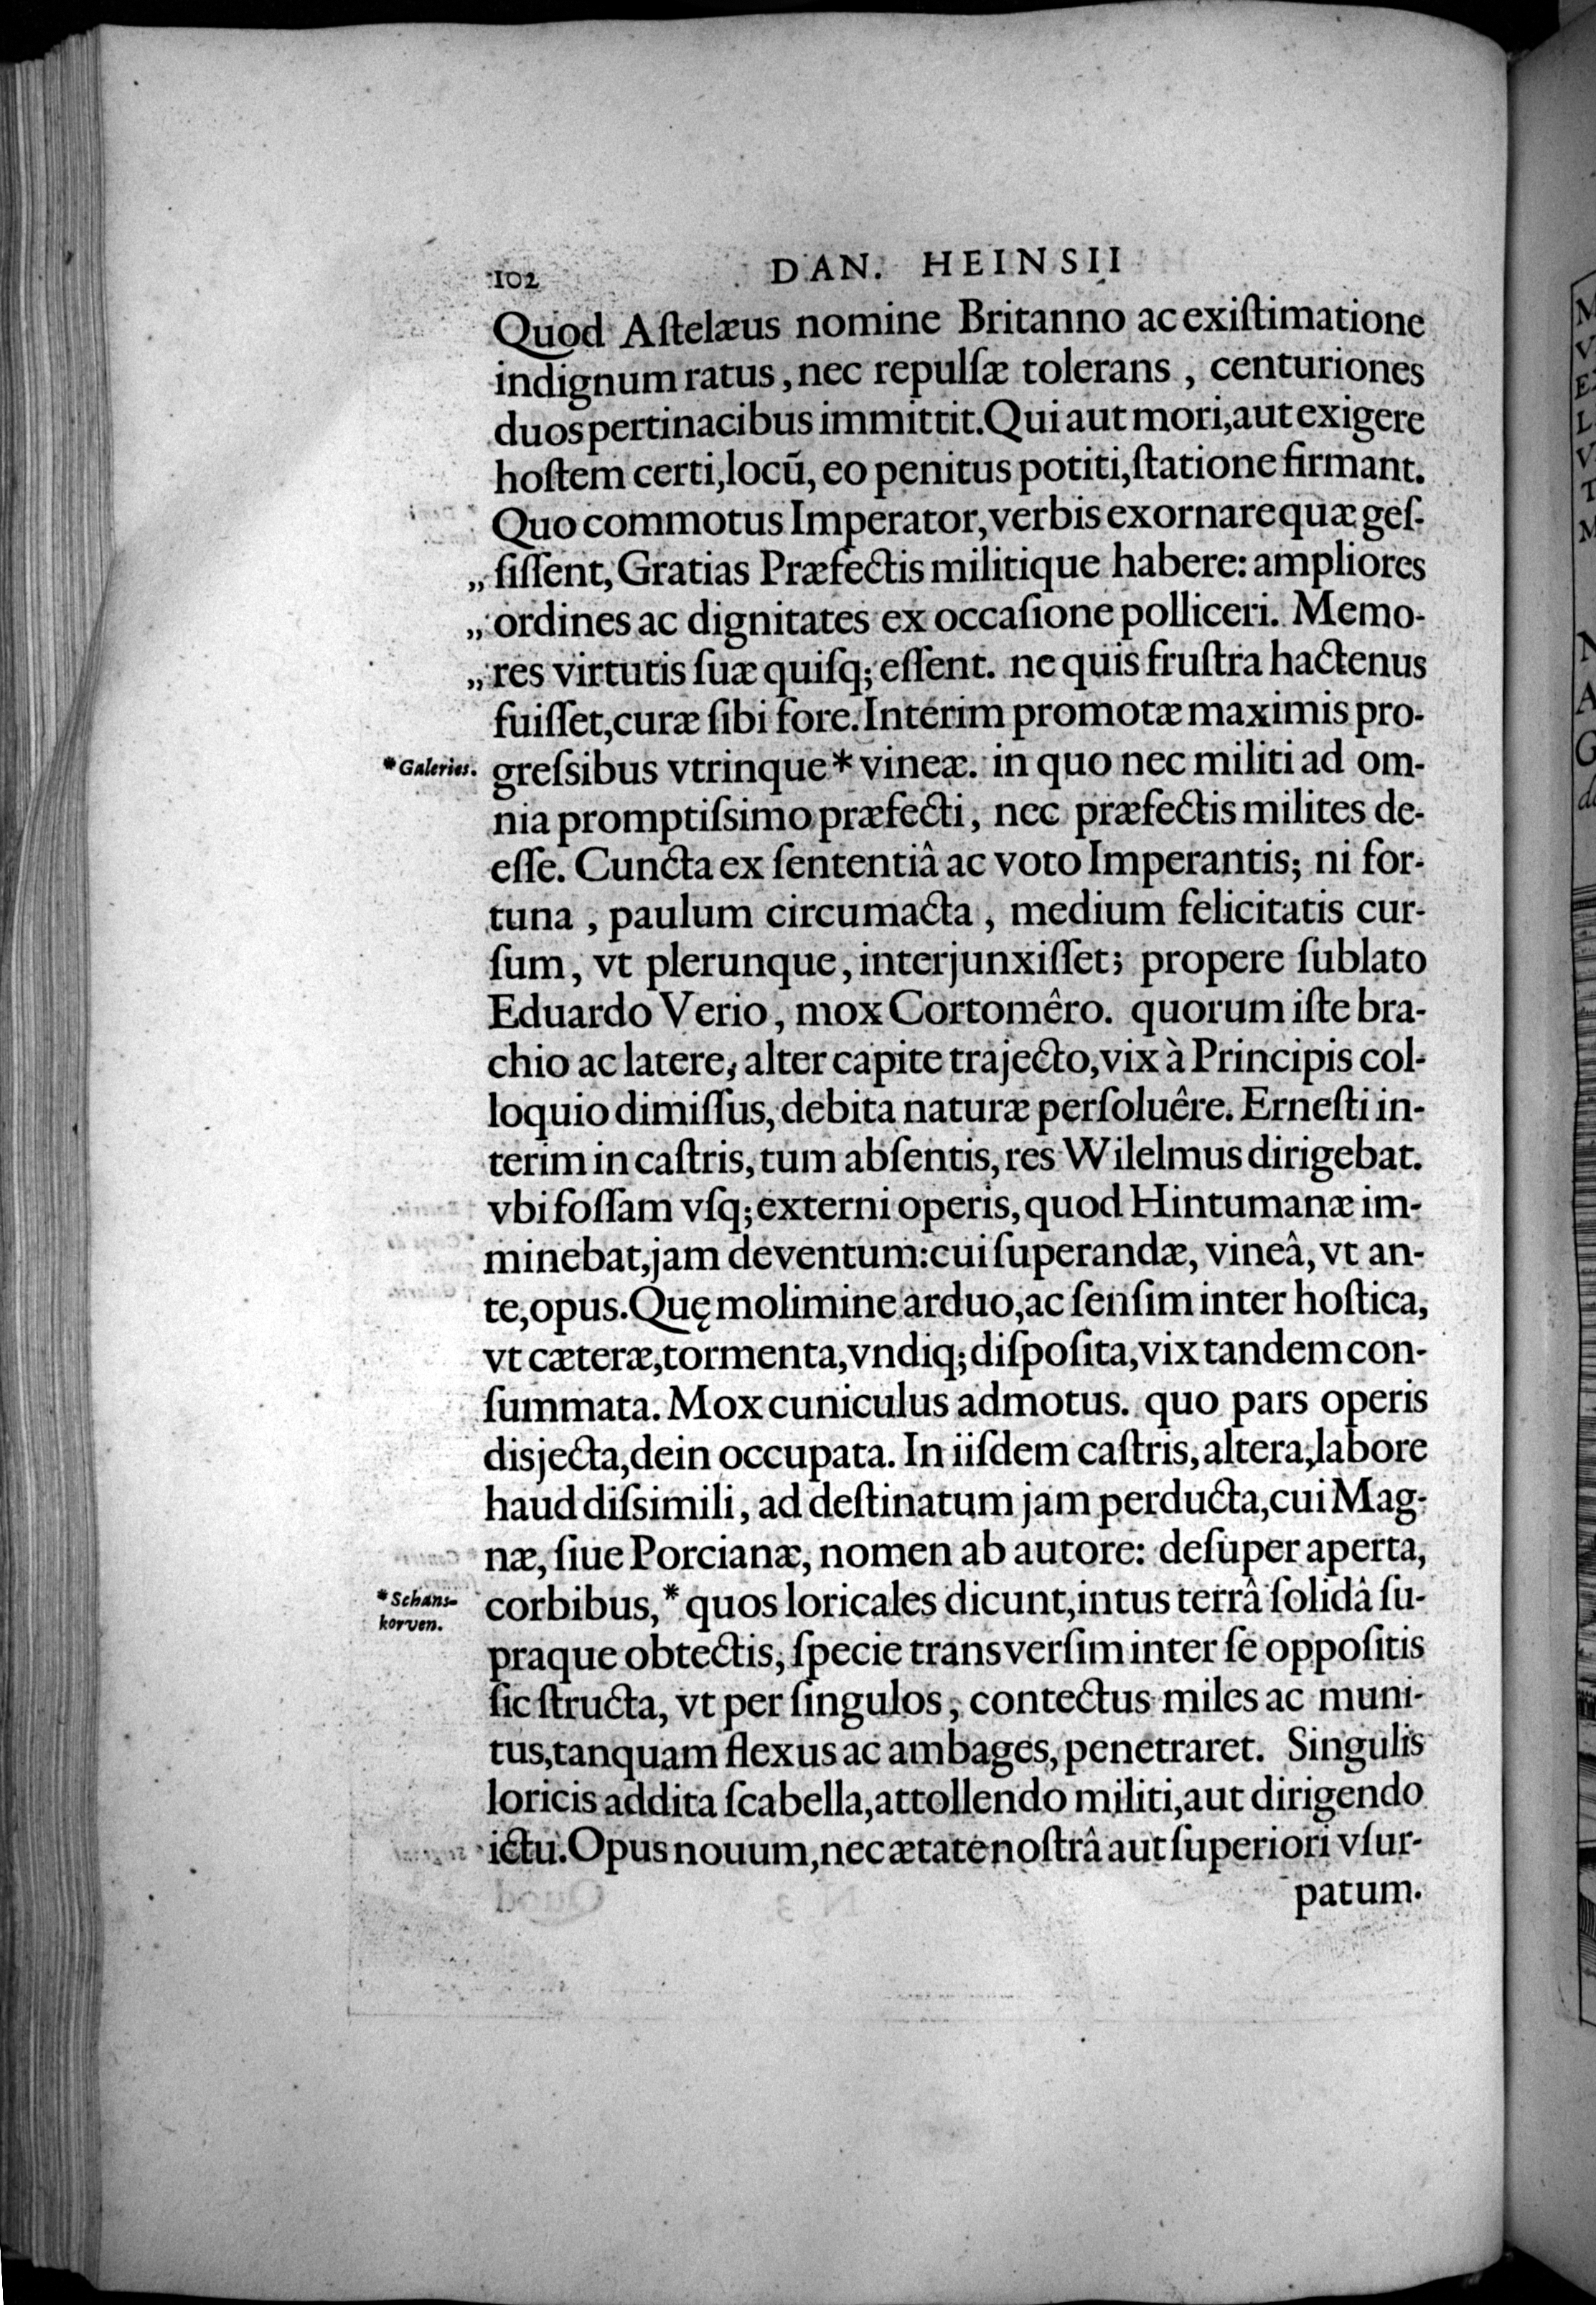 102 DAN. HEINSII
Quod Aſtelæus nomine Britanno ac exiſtimatione
indignum ratus, nec repulſæ tolerans, centuriones
duos pertinacibus immittit. Qui aut mori, aut exigere
hoſtem certi, locū, eo penitus potiti, ſtatione firmant.
Quo commotus Imperator, verbis exornare quæ geſ-
„ ſiſſent, Gratias Præfectis militique habere: ampliores
„ ordines ac dignitates ex occaſione polliceri. Memo-
„ res virtutis ſuæ quiſq; eſſent. ne quis fruſtra hactenus
fuiſſet, curæ ſibi fore. Interim promotæ maximis pro-
* Galeries.
greſsibus vtrinque * vineæ. in quo nec militi ad om-
nia promptiſsimo præfecti, nec præfectis milites de-
eſſe. Cuncta ex ſententiâ ac voto Imperantis; ni for-
tuna, paulum circumacta, medium felicitatis cur-
ſum, vt plerunque, interjunxiſſet; propere ſublato
Eduardo Verio, mox Cortomêro. quorum iſte bra-
chio ac latere, alter capite trajecto, vix à Principis col-
loquio dimiſſus, debita naturæ perſoluêre. Erneſti in-
terim in caſtris, tum abſentis, res Wilelmus dirigebat.
vbi foſſam vſq; externi operis, quod Hintumanæ im-
minebat, jam deventum: cui ſuperandæ, vineâ, vt an-
te, opus. Quę molimine arduo, ac ſenſim inter hoſtica,
vt cæteræ, tormenta, vndiq; diſpoſita, vix tandem con-
ſummata. Mox cuniculus admotus. quo pars operis
disjecta, dein occupata. In iiſdem caſtris, altera, labore
haud diſsimili, ad deſtinatum jam perducta, cui Mag-
næ, ſiue Porcianæ, nomen ab autore: deſuper aperta,
* Schans-
korven.
corbibus, * quos loricales dicunt, intus terrâ ſolidâ ſu-
praque obtectis, ſpecie transverſim inter ſe oppoſitis
ſic ſtructa, vt per ſingulos, contectus miles ac muni-
tus, tanquam flexus ac ambages, penetraret. Singulis
loricis addita ſcabella, attollendo militi, aut dirigendo
ictu. Opus nouum, nec ætate noſtrâ aut ſuperiori vſur-
patum.